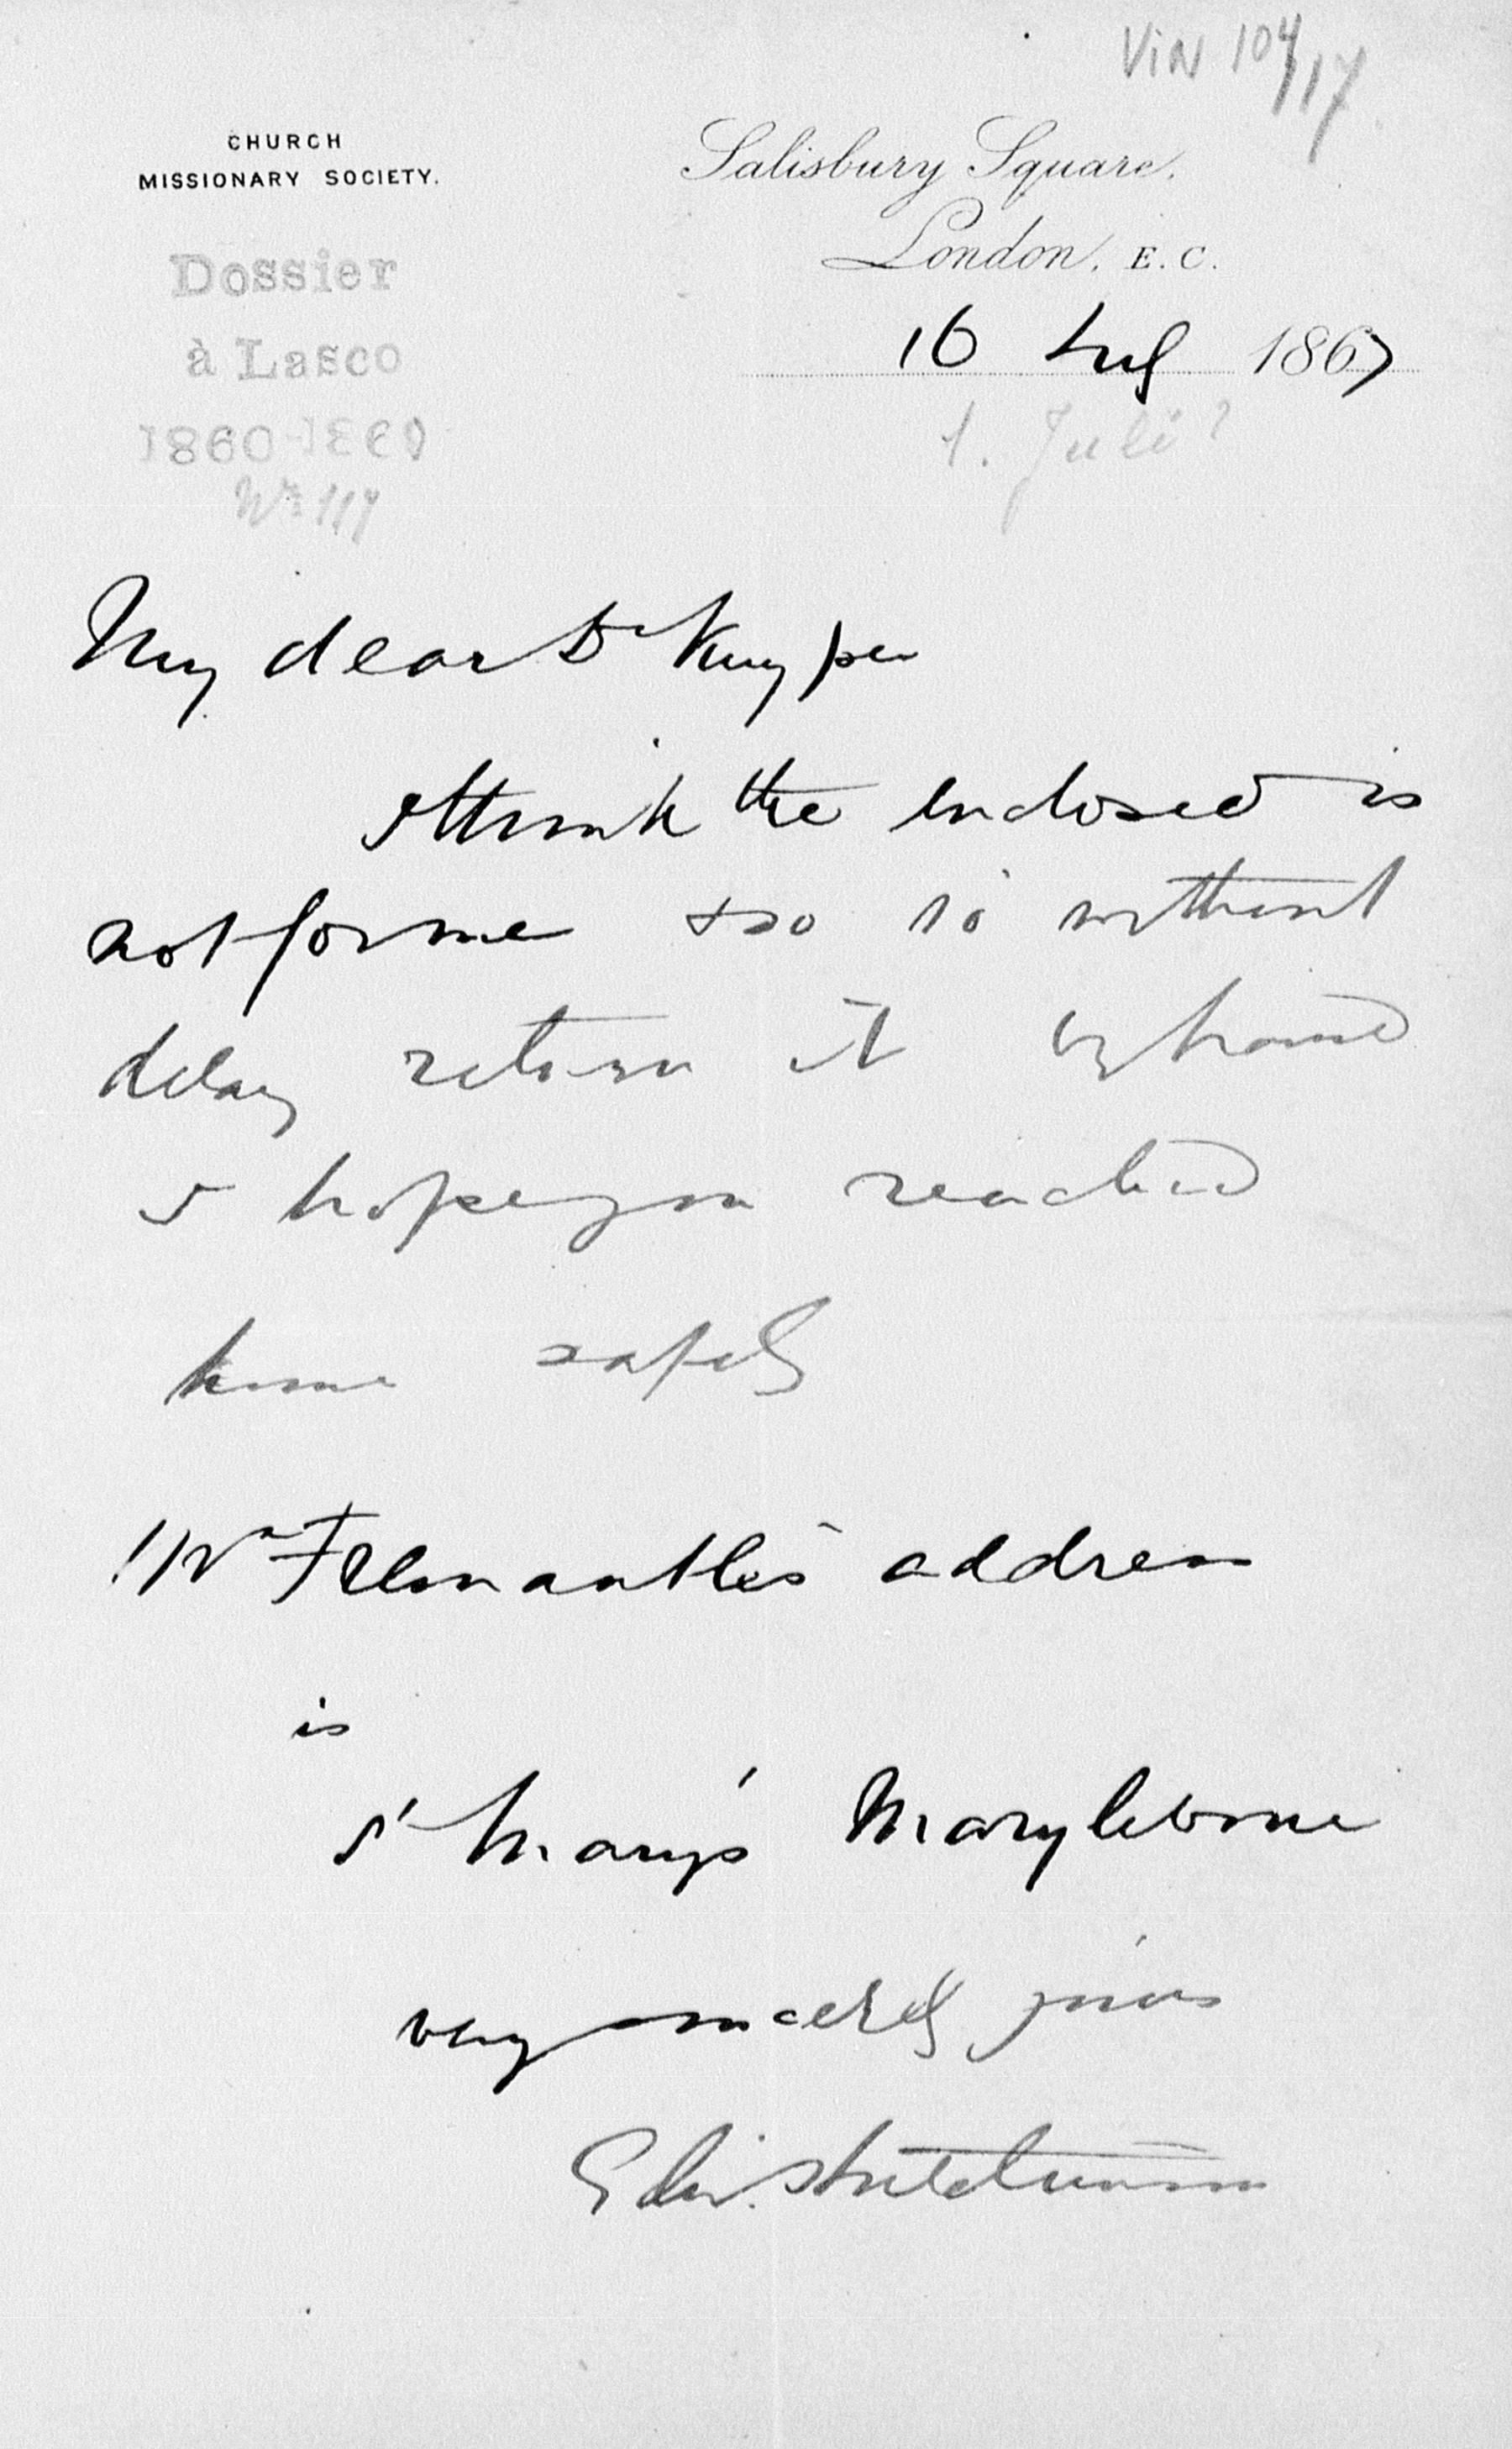 VIN 104/17
CHURCH
MISSIONARY SOCIETY.
Salisbury Square,
London, E. C.
Dossier
à Lasco
16 July 1867
1. Juli?
1860-1869
Nº 119
My dear Dr Kuyper
I think the enclosed is
not for me & so without
delay return it
I hope you reached
home safely
Mr Fremantles address
is
St Mary's Marylebone
very sincerely yours